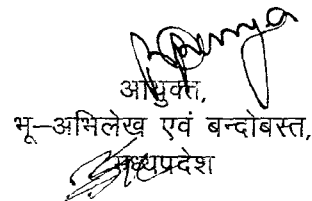 आयुक्त,
भू–अभिलेख एवं बन्दोबस्त,
मध्यप्रदेश